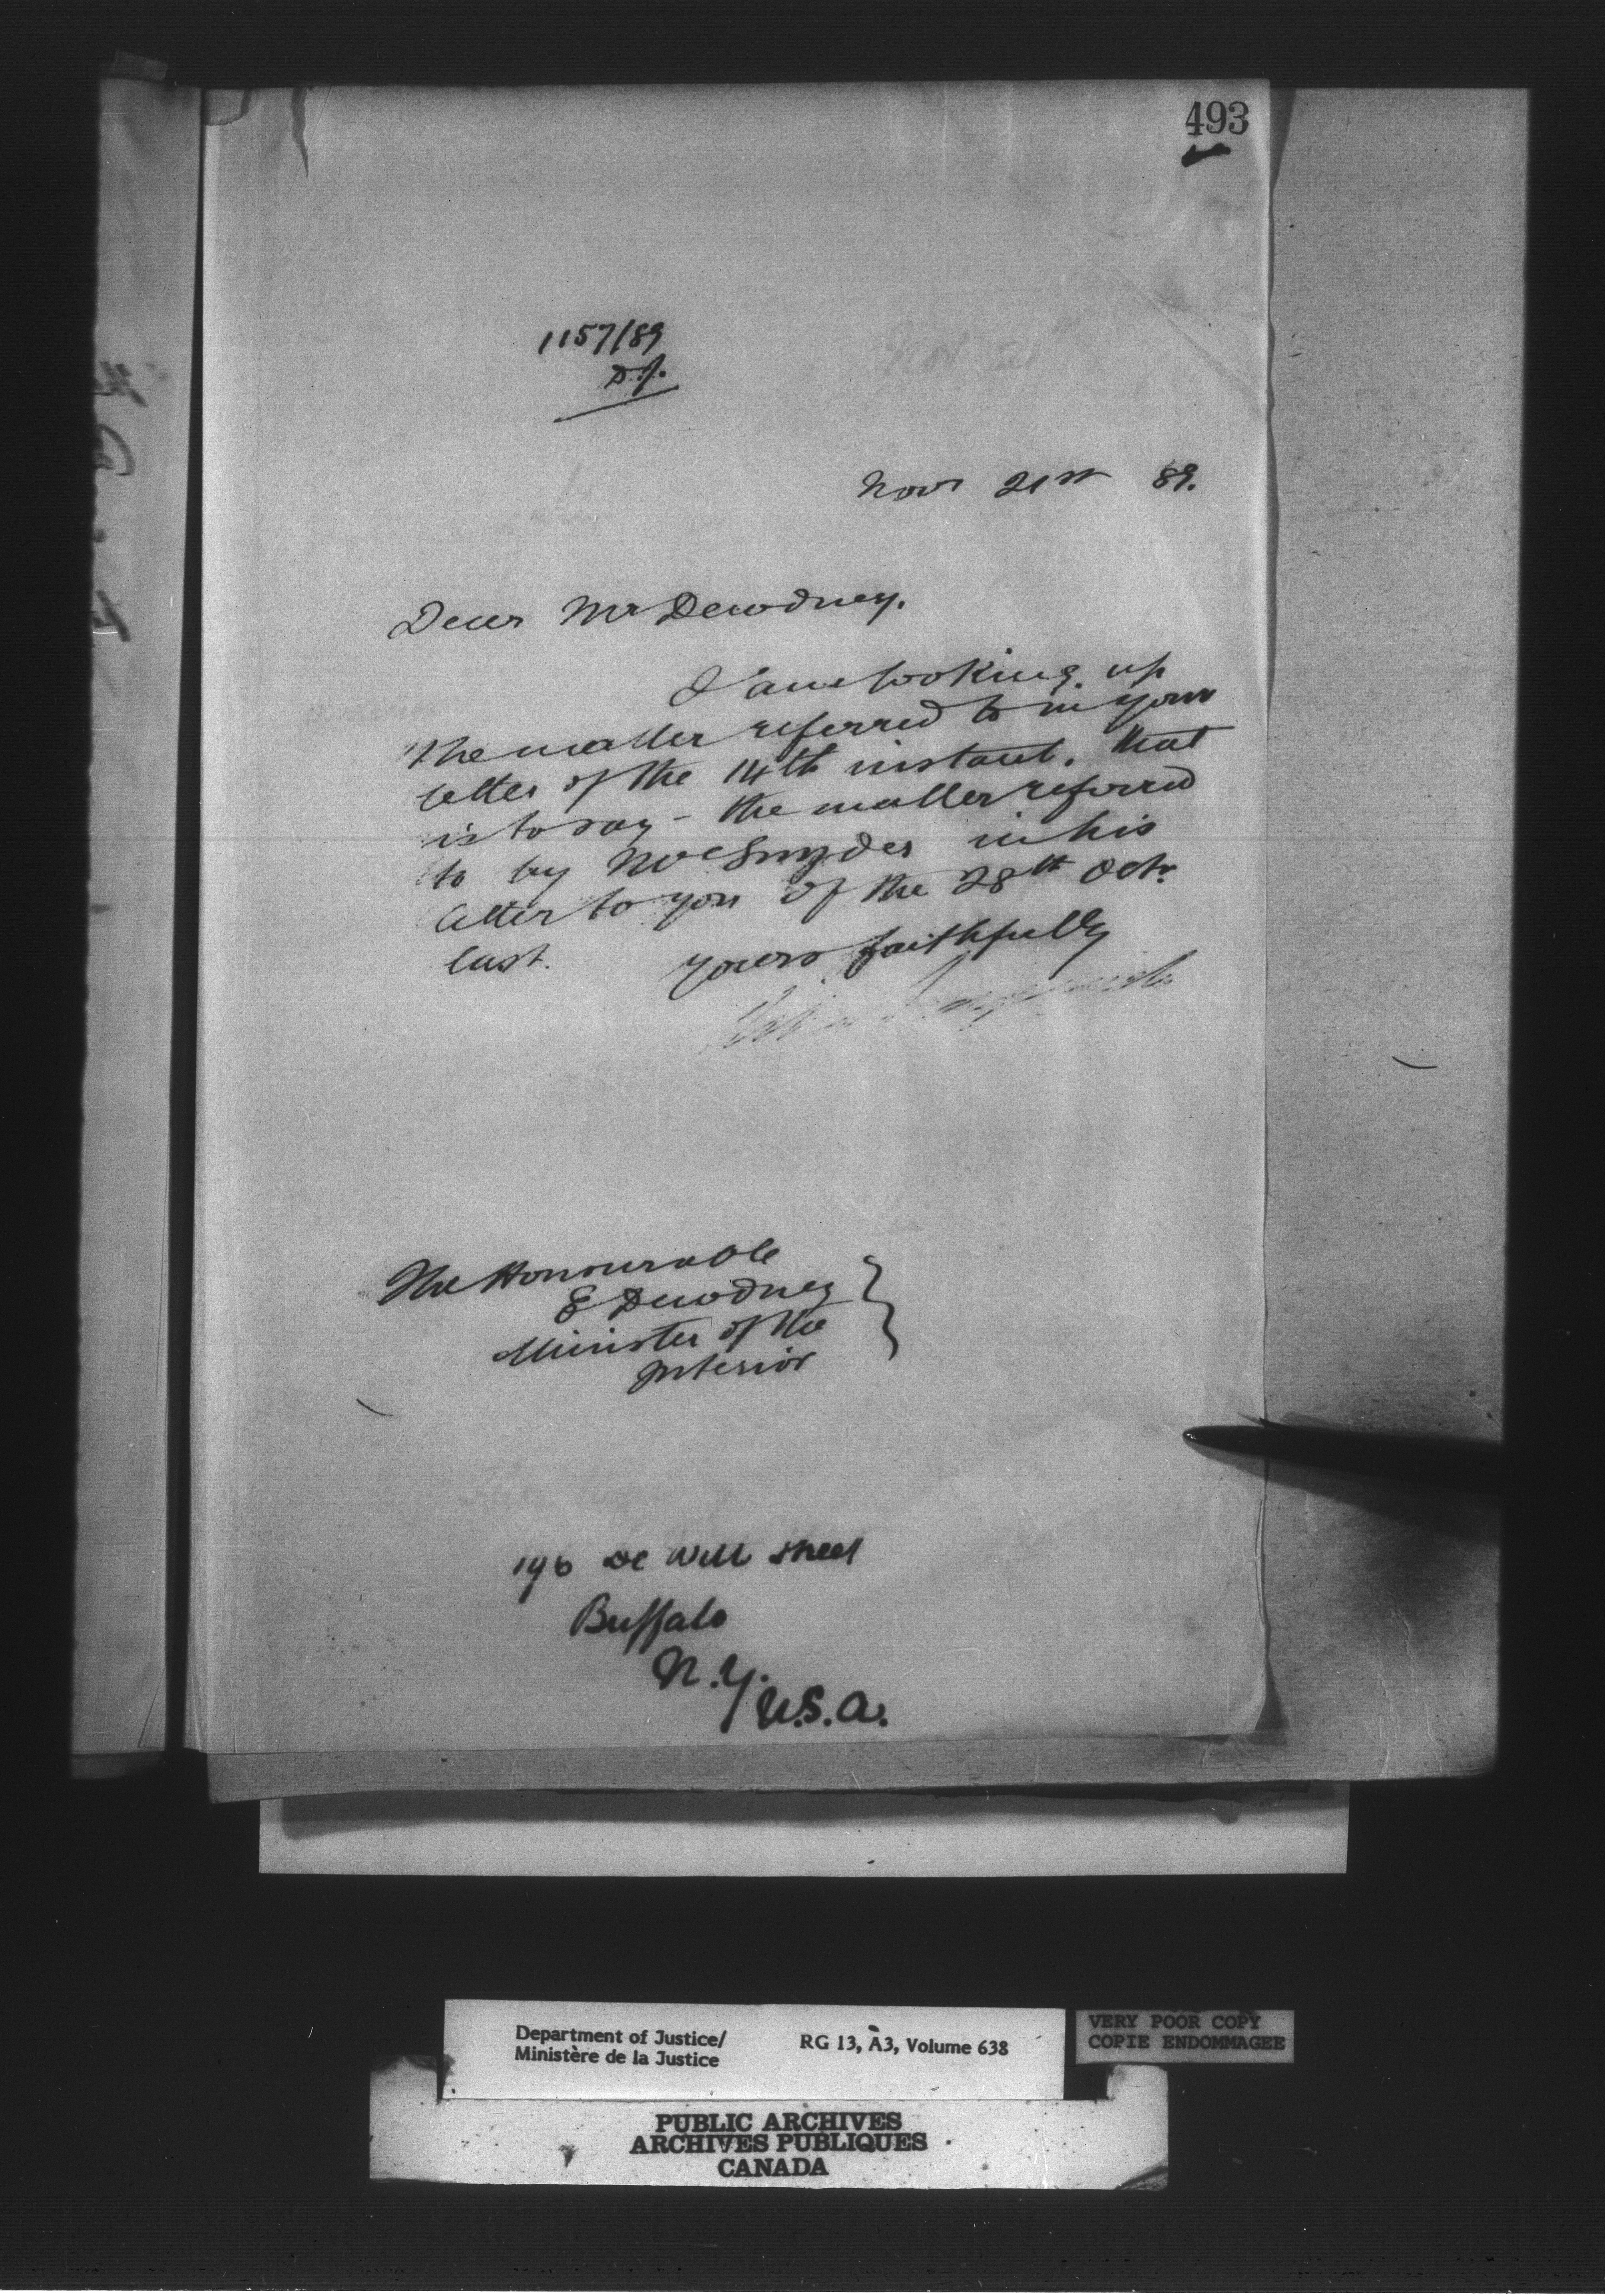 493
1157/89
D.J.
Novr 21st 89.
Dear Mr Dewdney.
I am looking up
the matter referred to in your
letter of the 14th instant, that
is to say - the matter referred
to by Mr Snyder in his
letter to you of the 28th Octr
last.
Yours faithfully
The Honourable
E Dewdney
Minister of the
Interior
196 De Witt Street
Buffalo
N.Y.
U.S.A.
Department of Justice/
Ministère de la Justice
RG 13, A3, Volume 638
VERY POOR COPY
COPIE ENDOMMAGEE
PUBLIC ARCHIVES
ARCHIVES PUBLIQUES
CANADA